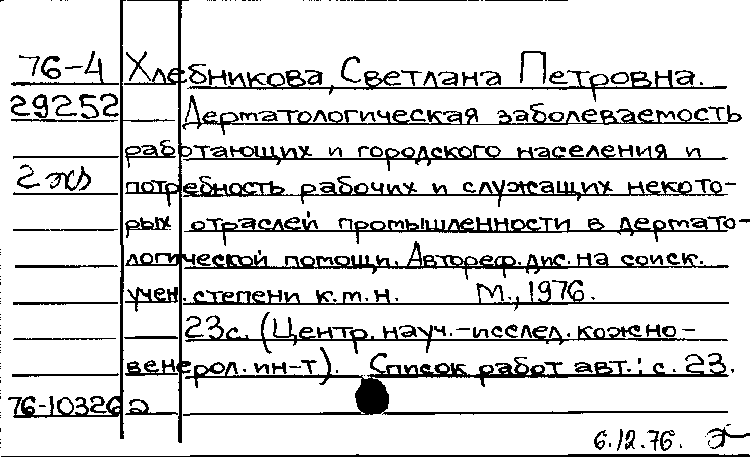 76-4 Хлебникова, Светлана Петровна.
29252 Дерматологическая заболеваемость
работающих и городского населения и
2 экз потребность рабочих и служащих некото-
рых отраслей промышленности в дермато-
логической помощи. Автореф. дис. на соиск.
учен. степени к.т.н. М., 1976.
23с. (Центр. науч.-исслед. кожно-
венерол. ин-т). Список работ авт.: с. 23.
76-10326
6.12.76.